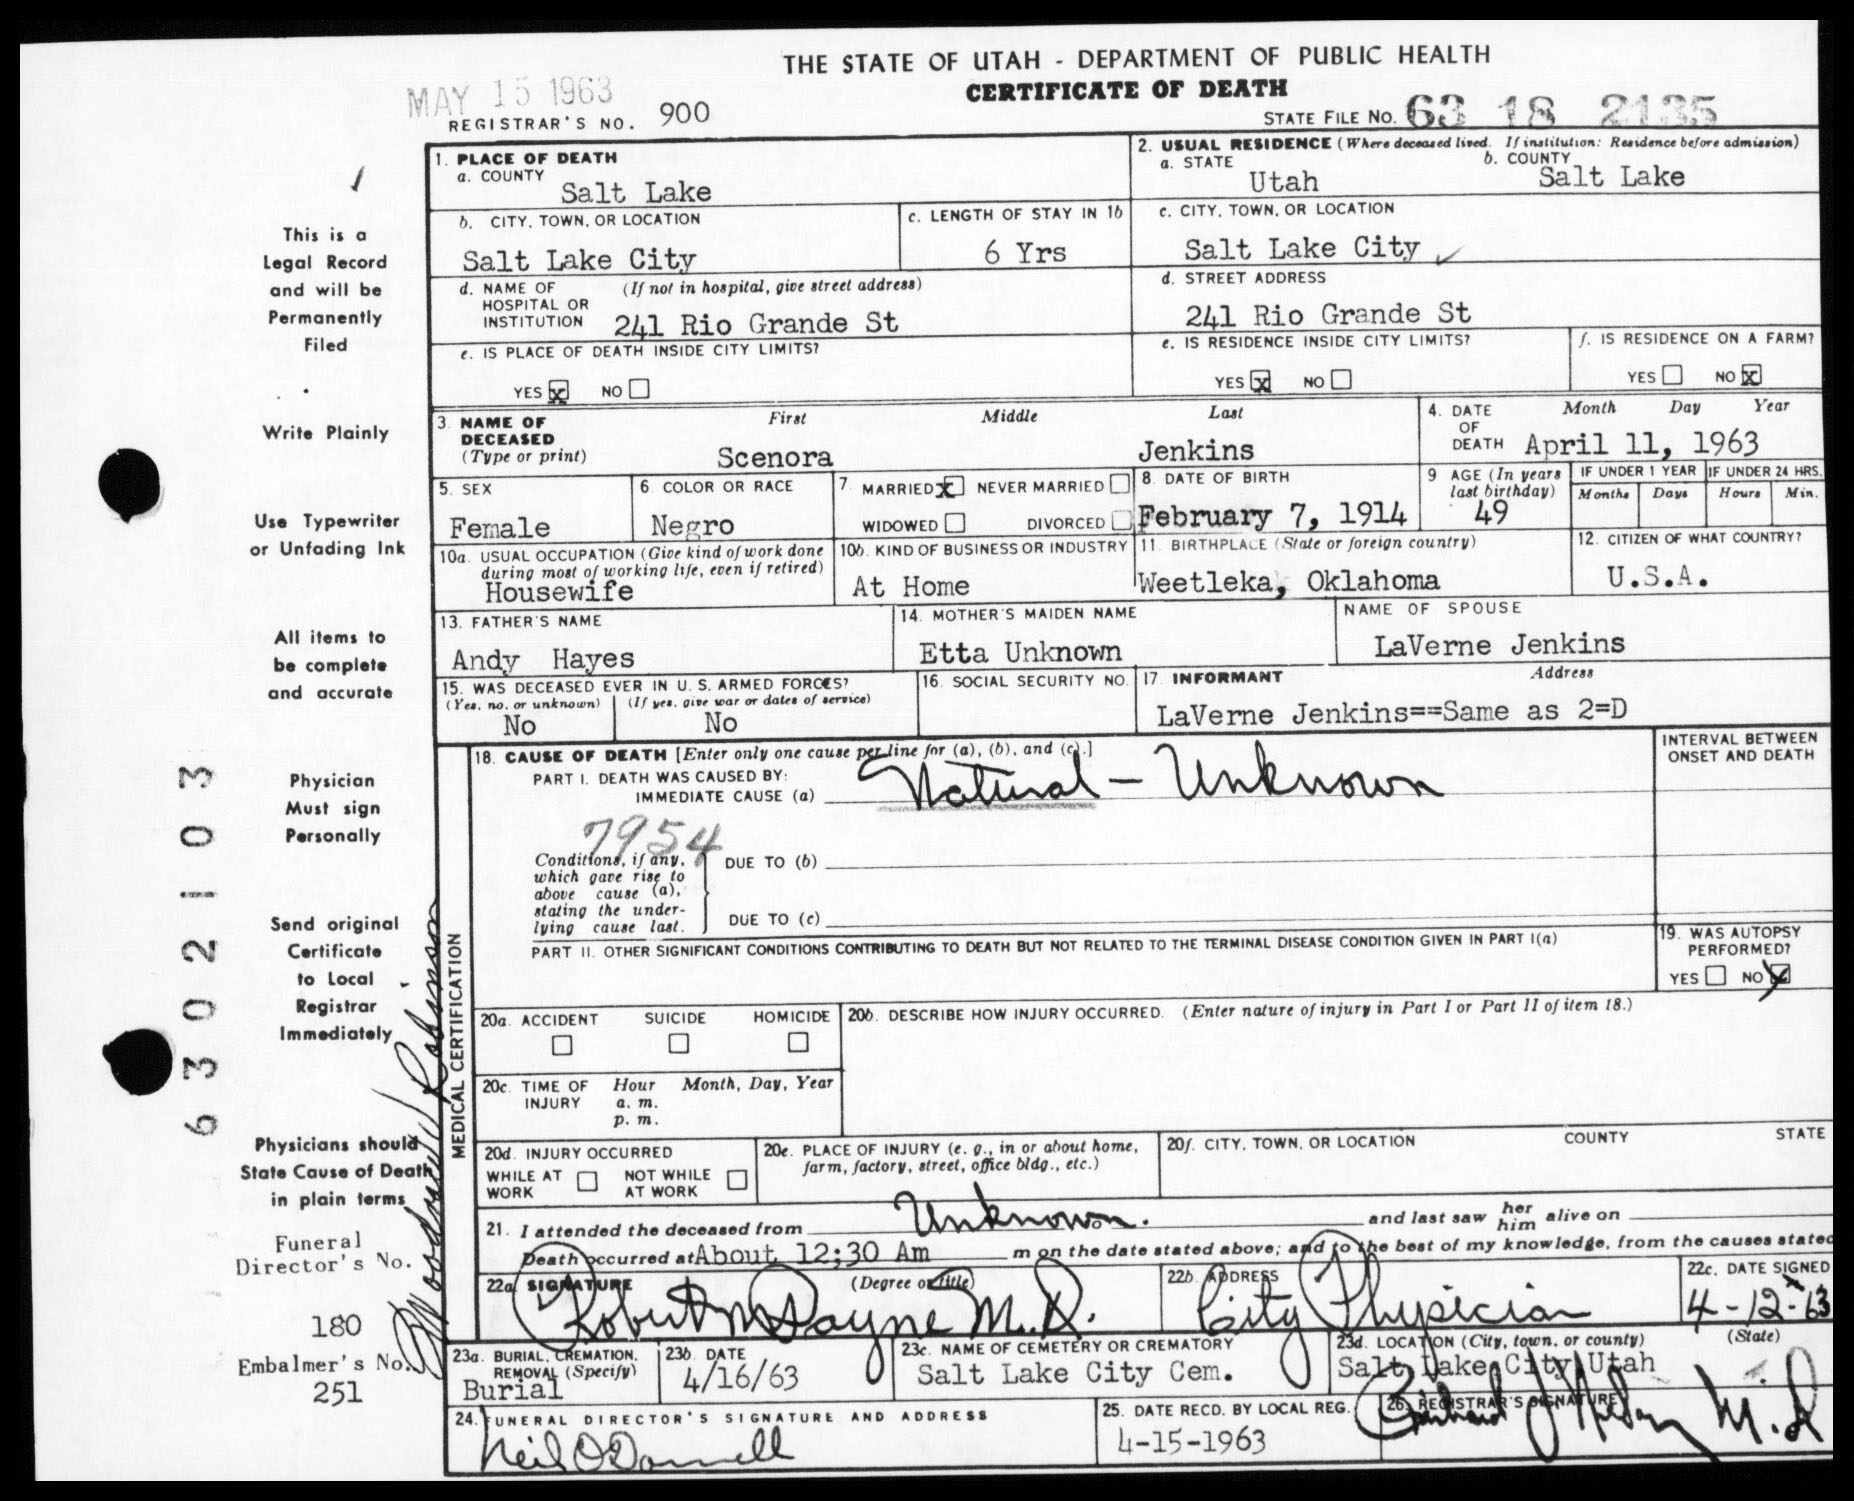 THE STATE OF UTAH - DEPARTMENT OF PUBLIC HEALTH
CERTIFICATE OF DEATH
MAY 15 1963
REGISTRAR'S NO. 900
STATE FILE NO. 63 18 2135
1. PLACE OF DEATH
a. COUNTY
Salt Lake
2. USUAL RESIDENCE (Where deceased lived. If institution: Residence before admission)
a. STATE
Utah
b. COUNTY
Salt Lake
b. CITY, TOWN, OR LOCATION
Salt Lake City
c. LENGTH OF STAY IN 1b
6 Yrs
c. CITY, TOWN, OR LOCATION
Salt Lake City
d. NAME OF (If not in hospital, give street address)
HOSPITAL OR
INSTITUTION 241 Rio Grande St
d. STREET ADDRESS
241 Rio Grande St
e. IS PLACE OF DEATH INSIDE CITY LIMITS?
YES X NO
e. IS RESIDENCE INSIDE CITY LIMITS?
YES X NO
f. IS RESIDENCE ON A FARM?
YES NO X
3. NAME OF
DECEASED
(Type or print)
First Middle Last
Scenora Jenkins
4. DATE
OF
DEATH
Month Day Year
April 11, 1963
5. SEX
Female
6. COLOR OR RACE
Negro
7. MARRIED X NEVER MARRIED
WIDOWED DIVORCED
8. DATE OF BIRTH
February 7, 1914
9 AGE (In years
last birthday)
49
IF UNDER 1 YEAR
Months Days
IF UNDER 24 HRS.
Hours Min.
10a. USUAL OCCUPATION (Give kind of work done
during most of working life, even if retired)
Housewife
10b. KIND OF BUSINESS OR INDUSTRY
At Home
11. BIRTHPLACE (State or foreign country)
Weetleka, Oklahoma
12. CITIZEN OF WHAT COUNTRY?
U.S.A.
13. FATHER'S NAME
Andy Hayes
14. MOTHER'S MAIDEN NAME
Etta Unknown
NAME OF SPOUSE
LaVerne Jenkins
15. WAS DECEASED EVER IN U. S. ARMED FORCES?
(Yes, no, or unknown) (If yes, give war or dates of service)
No No
16. SOCIAL SECURITY NO.
17. INFORMANT Address
LaVerne Jenkins==Same as 2=D
MEDICAL CERTIFICATION
18. CAUSE OF DEATH [Enter only one cause per line for (a), (b), and (c).]
PART I. DEATH WAS CAUSED BY:
IMMEDIATE CAUSE (a) Natural - Unknown
INTERVAL BETWEEN
ONSET AND DEATH
7954
Conditions, if any,
which gave rise to
above cause (a),
stating the under-
lying cause last.
DUE TO (b)
DUE TO (c)
PART II. OTHER SIGNIFICANT CONDITIONS CONTRIBUTING TO DEATH BUT NOT RELATED TO THE TERMINAL DISEASE CONDITION GIVEN IN PART I(a)
19. WAS AUTOPSY
PERFORMED?
YES NO X
20a. ACCIDENT SUICIDE HOMICIDE
20b. DESCRIBE HOW INJURY OCCURRED. (Enter nature of injury in Part I or Part II of item 18.)
20c. TIME OF Hour Month, Day, Year
INJURY a. m.
p. m.
20d. INJURY OCCURRED
WHILE AT NOT WHILE
WORK AT WORK
20e. PLACE OF INJURY (e. g., in or about home,
farm, factory, street, office bldg., etc.)
20f. CITY, TOWN, OR LOCATION COUNTY STATE
21. I attended the deceased from Unknown. and last saw her him alive on
Death occurred at About 12;30 Am m on the date stated above; and to the best of my knowledge, from the causes stated
22a. SIGNATURE (Degree or title)
Robert M Dayne M.D.
22b. ADDRESS
City Physician
22c. DATE SIGNED
4-12-63
23a. BURIAL, CREMATION,
REMOVAL (Specify)
Burial
23b. DATE
4/16/63
23c. NAME OF CEMETERY OR CREMATORY
Salt Lake City Cem.
23d. LOCATION (City, town, or county) (State)
Salt Lake City Utah
24. FUNERAL DIRECTOR'S SIGNATURE AND ADDRESS
Neil O'Donnell
25. DATE RECD. BY LOCAL REG.
4-15-1963
26. REGISTRAR'S SIGNATURE
M.D
This is a
Legal Record
and will be
Permanently
Filed
Write Plainly
Use Typewriter
or Unfading Ink
All items to
be complete
and accurate
Physician
Must sign
Personally
Send original
Certificate
to Local
Registrar
Immediately
Physicians should
State Cause of Death
in plain terms
Funeral
Director's No.
180
Embalmer's No.
251
6302103
Woodrow Robinson